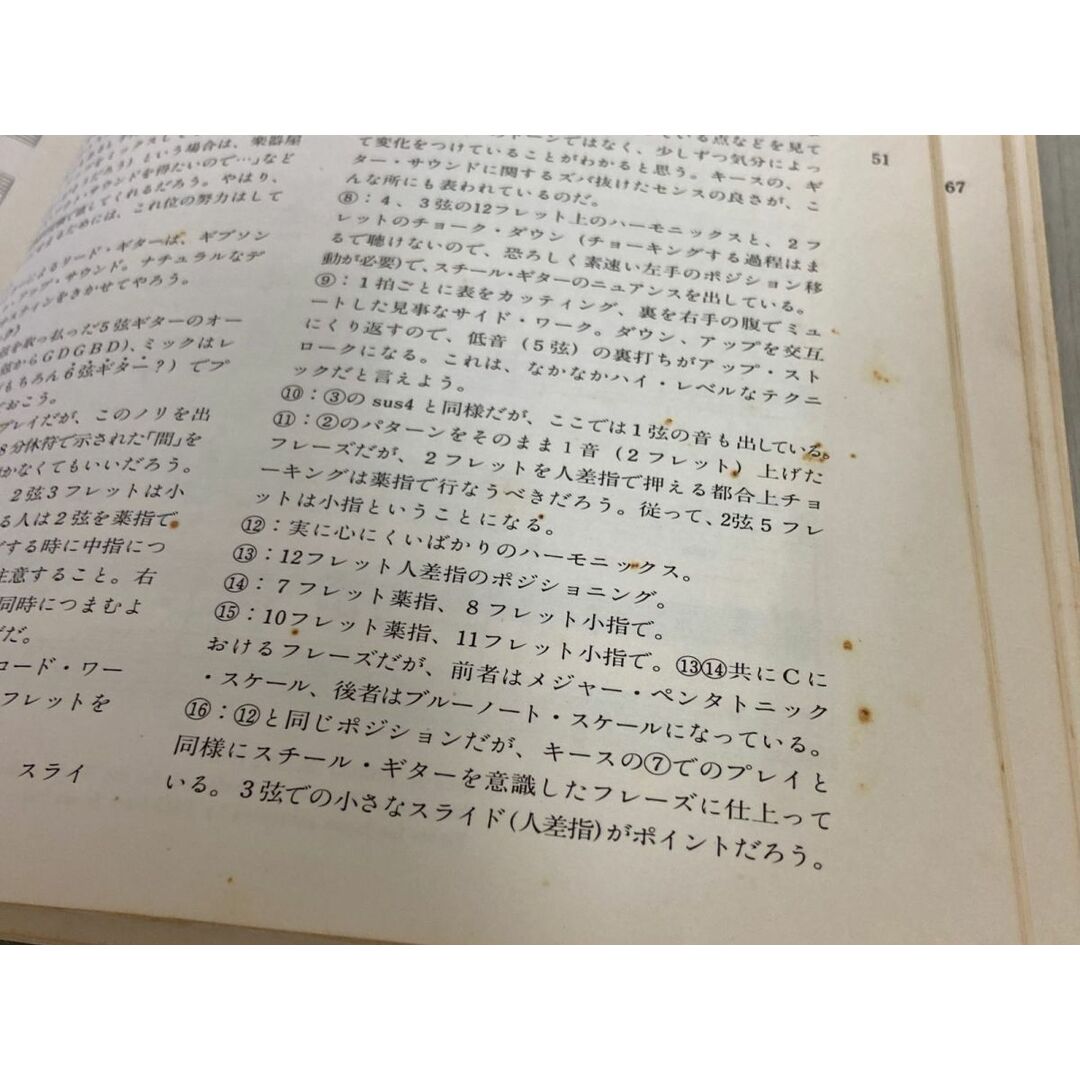 いう場合は、楽器屋
サウンドを得たいので…」など
してくれるだろう。やはり、
ためには、これ位の努力はして
リード・ギターは、ギブソン
アップ・サウンド。ナチュラルなデ
ラインをきかせてやろう。
払った5弦ギターのオー
からGDGBD)、ミックはレ
もちろん6弦ギター?)でプ
おこう。
プレイだが、このノリを出
8分休符で示された「間」を
かなくてもいいだろう。
2弦3フレットは小
る人は2弦を薬指で
する時に中指につ
注意すること。右
同時につまむよ
だ。
コード・ワー
フレットを
スライ
いる点などを見て
トーンではなく、少しずつ気分によっ
て変化をつけていることがわかると思う。キースの、ギ
ター・サウンドに関するズバ抜けたセンスの良さが、こ
んな所にも表われているのだ。
⑧：4、3弦の12フレット上のハーモニックスと、2フ
レットのチョーク・ダウン（チョーキングする過程はま
るで聴けないので、恐ろしく素速い左手のポジション移
動が必要)で、スチール・ギターのニュアンスを出している。
⑨：1拍ごとに表をカッティング、裏を右手の腹でミュ
ートした見事なサイド・ワーク。ダウン、アップを交互
にくり返すので、低音（5弦）の裏打ちがアップ・スト
ロークになる。これは、なかなかハイ・レベルなテクニ
ックだと言えよう。
⑩：③の sus4 と同様だが、ここでは1弦の音も出している。
⑪：②のパターンをそのまま1音（2フレット）上げた
フレーズだが、2フレットを人差指で押える都合上チョ
ーキングは薬指で行なうべきだろう。従って、2弦5フレ
ットは小指ということになる。
⑫：実に心にくいばかりのハーモニックス。
⑬：12フレット人差指のポジショニング。
⑭：7フレット薬指、8フレット小指で。
⑮：10フレット薬指、11フレット小指で。⑬⑭共にCに
おけるフレーズだが、前者はメジャー・ペンタトニック
・スケール、後者はブルーノート・スケールになっている。
⑯：⑫と同じポジションだが、キースの⑦でのプレイと
同様にスチール・ギターを意識したフレーズに仕上って
いる。3弦での小さなスライド(人差指)がポイントだろう。
51
67